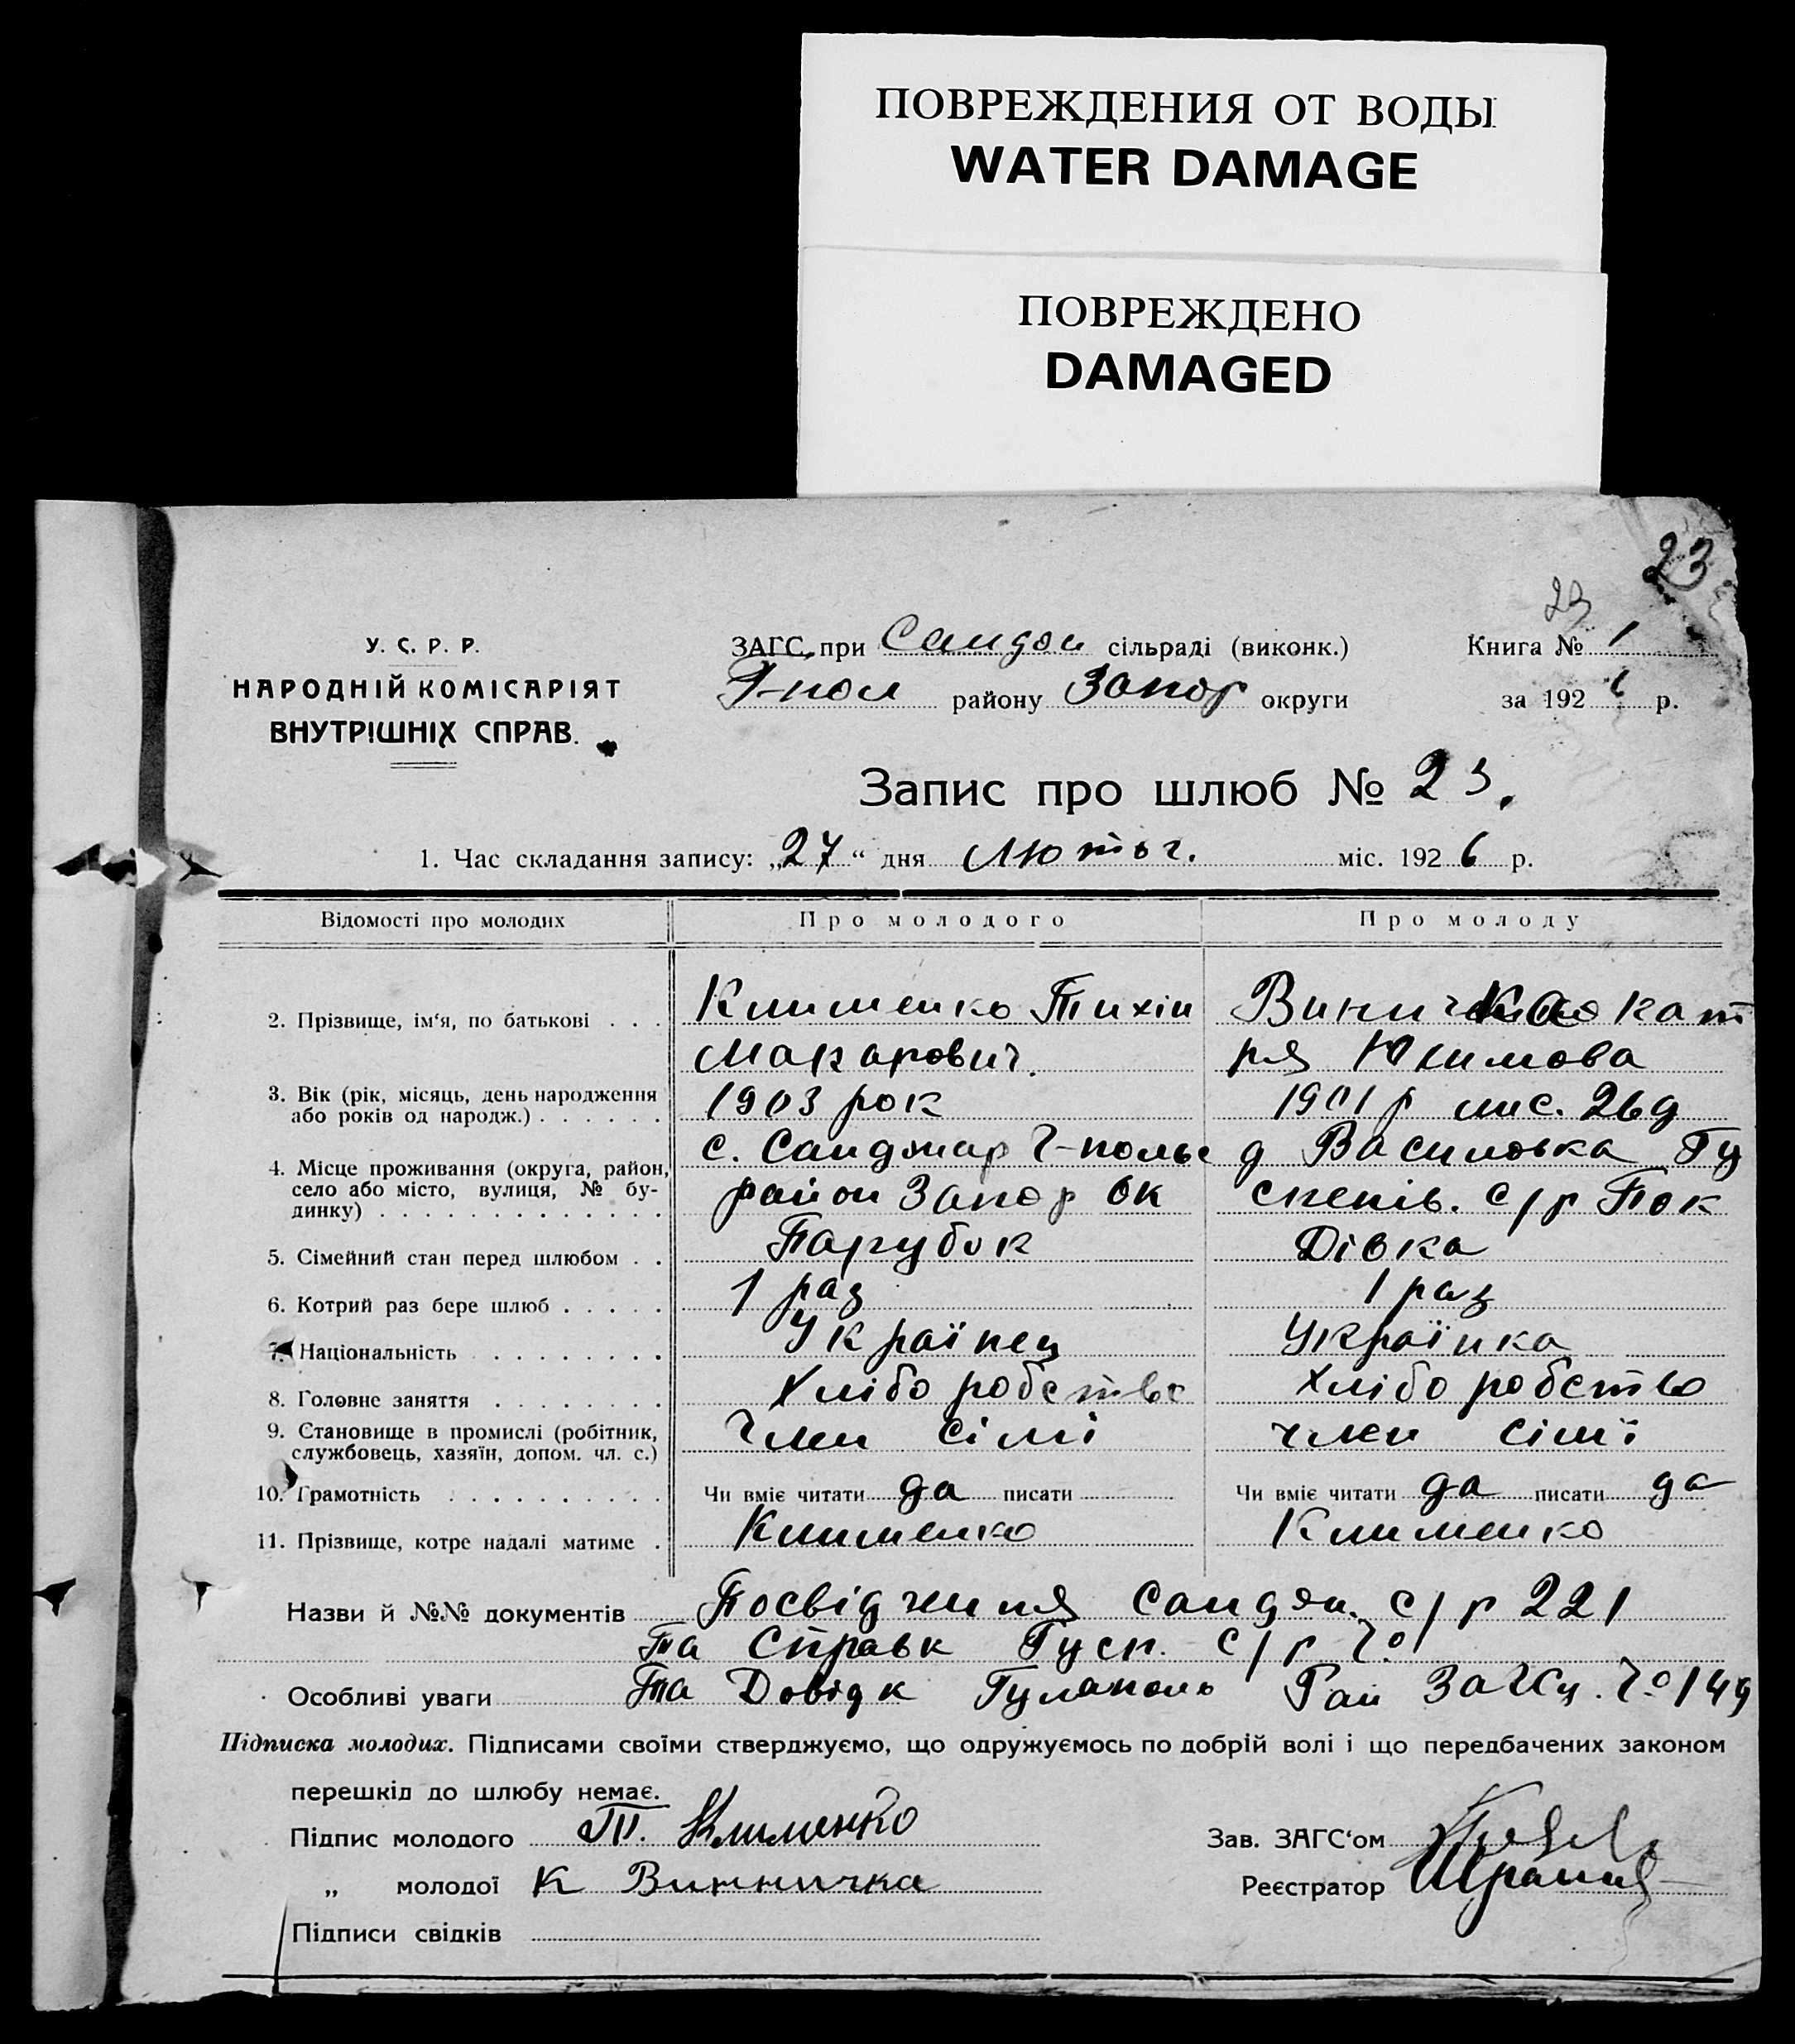 ПОВРЕЖДЕНИЯ ОТ ВОДЫ
WATER DAMAGE
ПОВРЕЖДЕНО
DAMAGED
23
23
У. С. Р. Р.
НАРОДНІЙ КОМІСАРІЯТ
ВНУТРІШНІХ СПРАВ.
ЗАГС при сільраді (виконк.) Книга № 1
Г-пол району Запор округи за 1926 р.
Запис про шлюб № 23.
1. Час складання запису: „27“ дня лютог. міс. 1926 р.
Відомості про молодих Про молодого Про молоду
2. Прізвище, ім‘я, по батькові . . . Клименко Тихін Макарович. Кат
ря Юхимова
3. Вік (рік, місяць, день народження
або років од народж.) . . . . . . 1903 рок 1901 р 26 д
4. Місце проживання (округа, район,
село або місто, вулиця, № бу-
динку) . . . . . . . . . . . . . с. Санджар Г-польс
район Запор ок
д Василовка Гу
с/р Пок
5. Сімейний стан перед шлюбом . . Парубок Дівка
6. Котрий раз бере шлюб . . . . . 1 раз 1 раз
7. Національність . . . . . . . . Українец Українка
8. Головне заняття . . . . . . . . Хліборобство Хліборобство
9. Становище в промислі (робітник,
службовець, хазяїн, допом. чл. с.) Член сімі член сімї
10. Грамотність . . . . . . . . . . Чи вміє читати да писати Чи вміє читати да писати да
11. Прізвище, котре надалі матиме . Клименко Клименко
Назви й №№ документів Посвідчиня с/р 221
та Справк Гусп. с/р
Особливі уваги та Довідк Гуляполь Рай ЗАГСу. № 149
Підписка молодих. Підписами своїми стверджуємо, що одружуємось по добрій волі і що передбачених законом
перешкід до шлюбу немає.
Підпис молодого Т. Клименко Зав. ЗАГС‘ом
„ молодої К Винничка Реєстратор
Підписи свідків